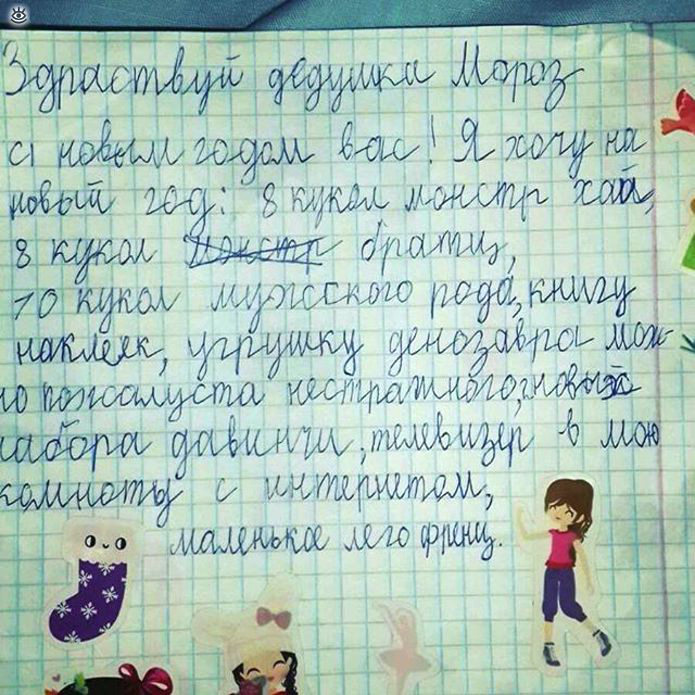 Здраствуй дедушка Мороз
с новым годом вас! Я хочу на
новый год: 8 кукол монстр хай,
8 кукол монстр братц,
10 кукол мужсского рода, книгу
наклеяк, угрушку денозавра мож-
но пожалуста нестрашного,
набора давинчи, телевизер в мою
комноты с интернетом,
маленькое лего френц.